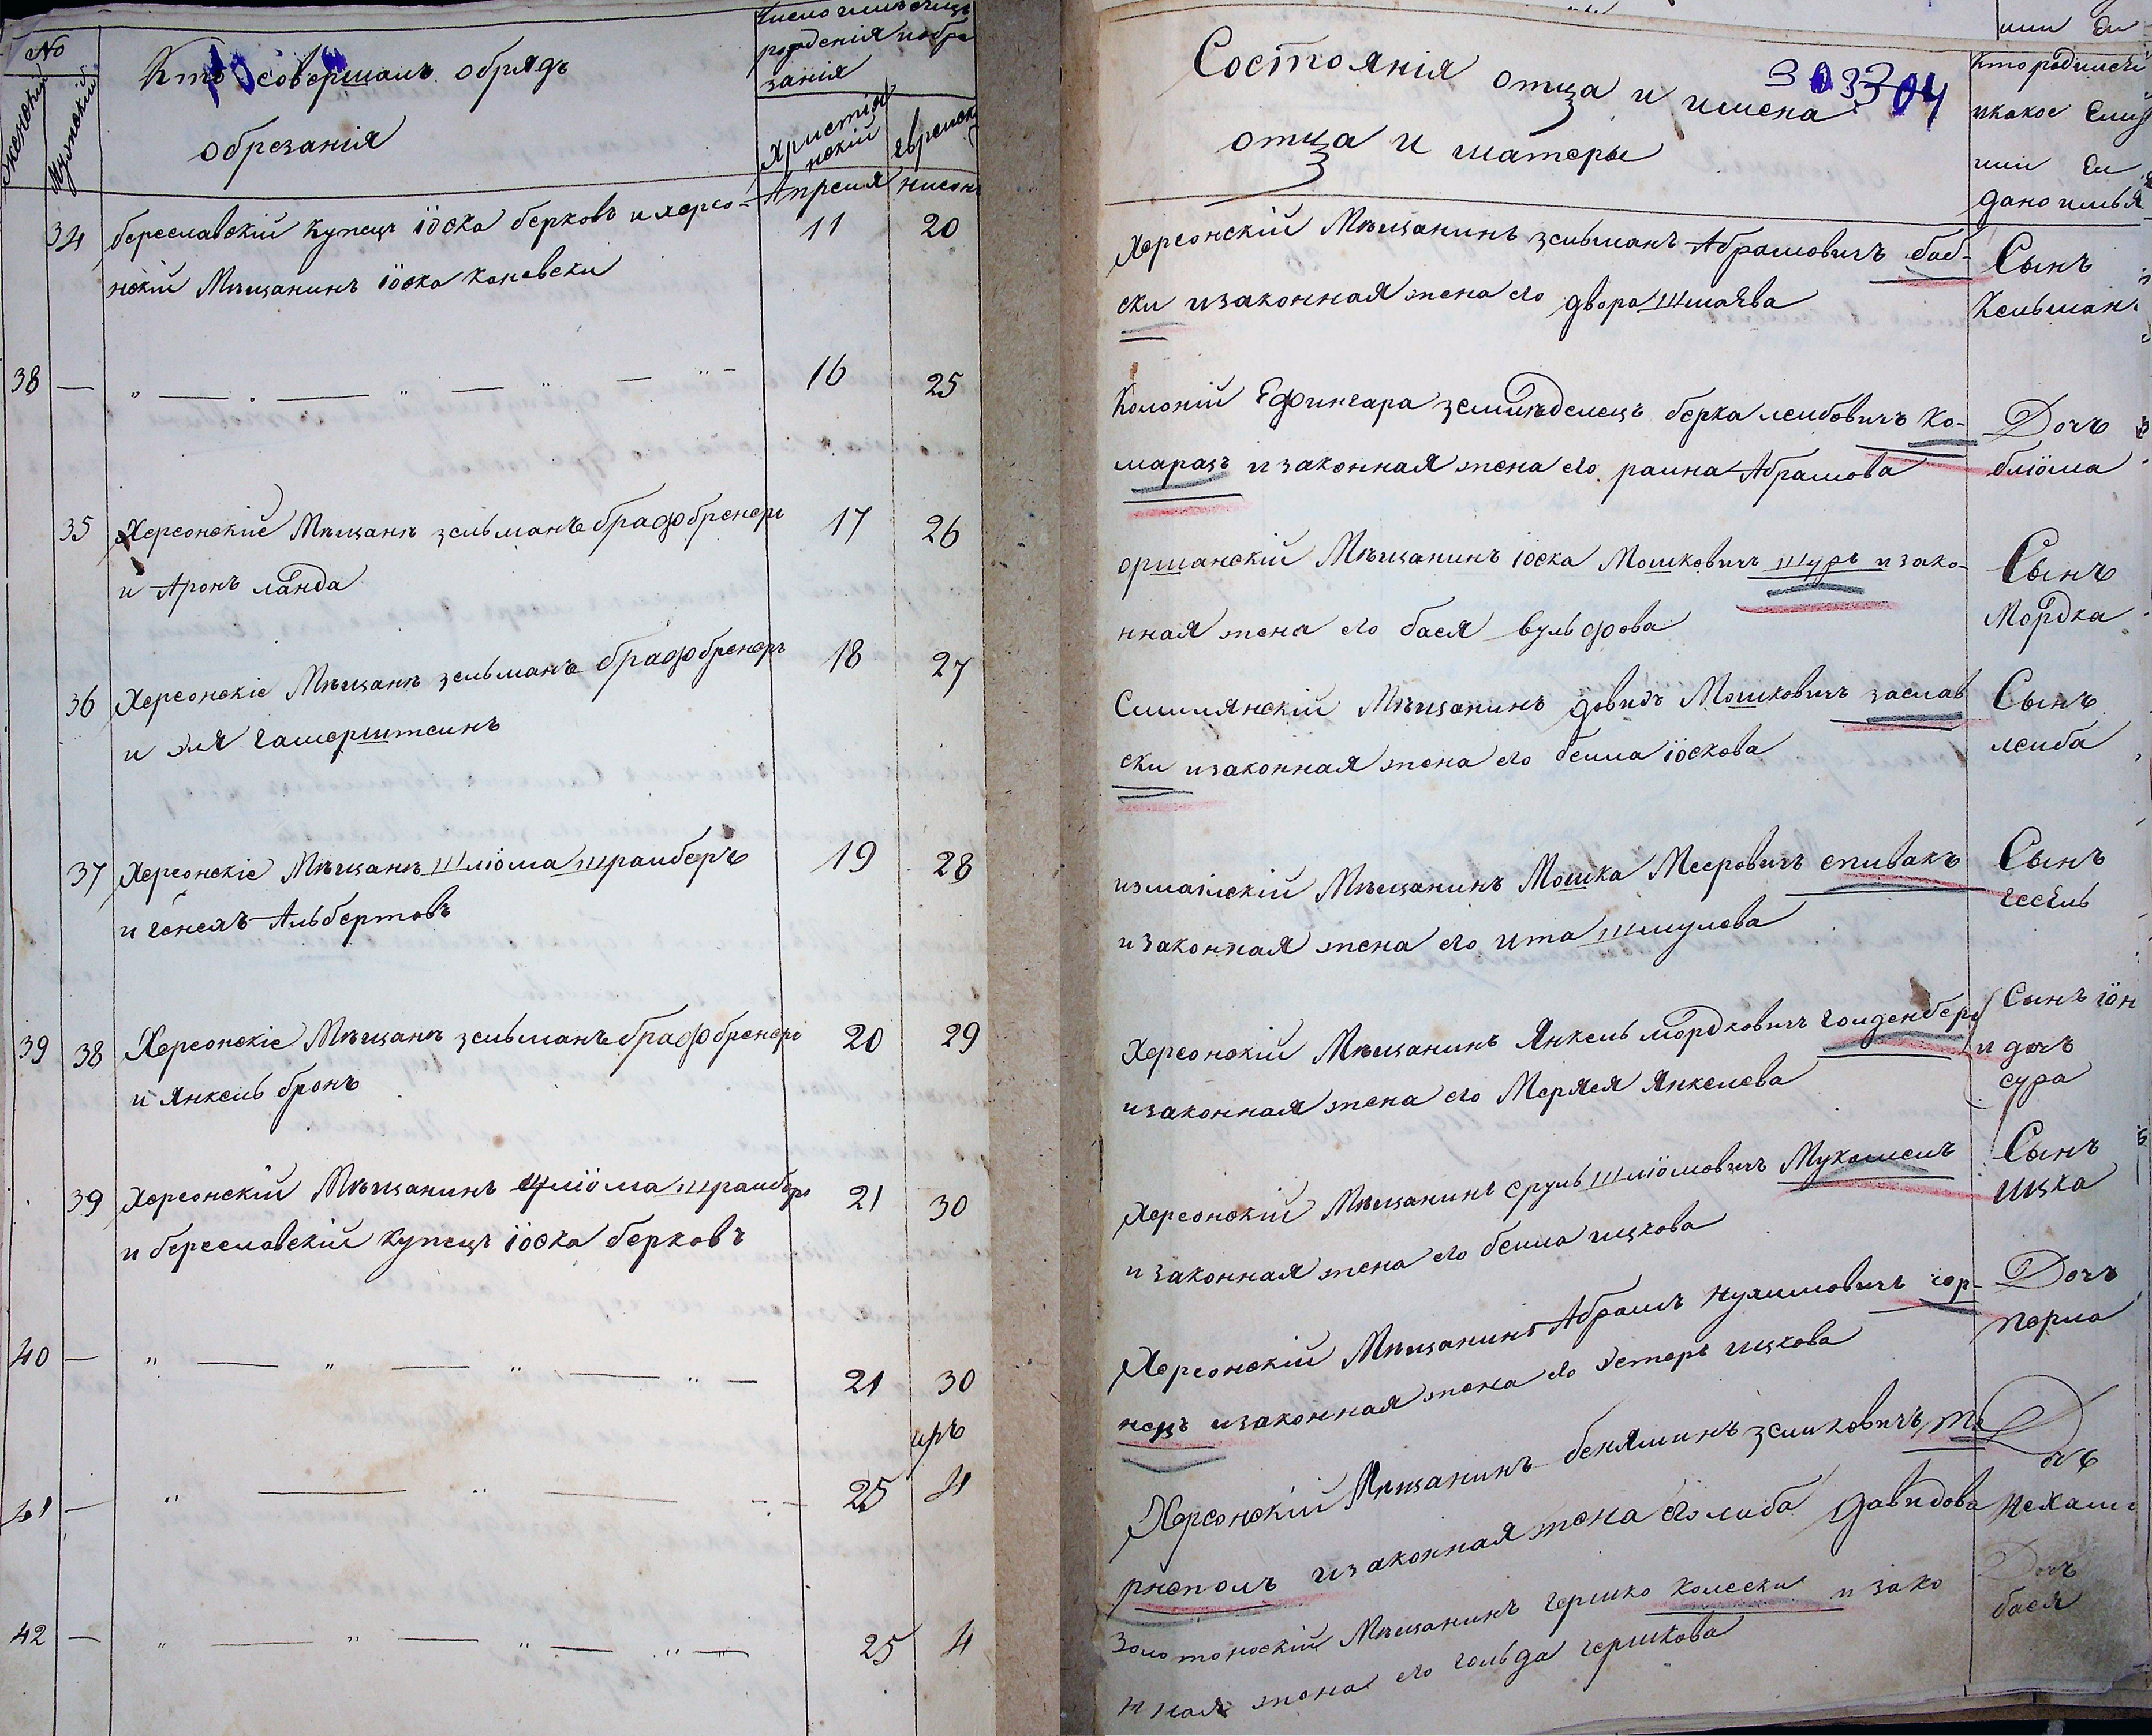 No
Женский
Мужеский
Кто совершалъ обрядъ
обрезанія
рожденія и обре
занія
Христіа
нскій
Еврейск
Апреля
нисонъ
34 береславскій Купецъ іоска берковъ и херсо-
11 20
нскій Мѣщанинъ іоска каневски
38 — „ — „ — „ — „ — 16 25
35 Херсонскіе Мѣщанѣ зельманъ брафбренеръ 17 26
и Аронъ ланда
36 Херсонскіе Мѣщанѣ зельманъ брафбренеръ 18 27
и эля гамерштеинъ
37 Херсонскіе Мѣщанѣ Шліома штраиберъ 19 28
и генехъ Альбертовъ
39 38 Херсонскіе Мѣщанѣ зельманъ брафбренеръ 20 29
и Янкель бронъ
39 Херсонскій Мѣщанинъ Шліома штраиберъ 21 30
и береславскій Купецъ іоска берковъ
40 — „ — „ — „ — „ — 21 30
иръ
41 — „ — „ — „ — 25 4
42 — „ — „ — „ — „ — 25 4
Состоянія отца и имена
отца и матеры
304
или Еи
Кто родился
и какое Ему
или Еи
дано имья
Херсонскій Мѣщанинъ зельманъ Абрамовичъ баб-
ски и законная жена его двора Шмаева
Сынъ
Кельман
Колоній Ефингара земледелецъ берка леибовичъ Ко-
марацъ и законная жена его раина Абрамова
Дочъ
бліома
оршанскій Мѣщанинъ іоска Мошковичъ шуръ и зако-
нная жена его бася вульфова
Сынъ
Мордка
Мѣщанинъ довидъ Мошковичъ заслав
ски и законная жена его беила іоскова
Сынъ
леиба
измаилскій Мѣщанинъ Мошка Мееровичъ спивакъ
и законная жена его ита шмулева
Сынъ
гесель
Херсонскій Мѣщанинъ Янкель мордковичъ голденберг
и законная жена его Меряся Янкелева
Сынъ іон
и дочъ
сура
Херсонскій Мѣщанинъ сруль шліомовичъ Мукомелъ
и законная жена его беила ицкова
Сынъ
ицка
Херсонскій Мѣщанинъ Абрамъ нухимовичъ гор-
нецъ и законная жена его эстеръ ицкова
Дочъ
перла
Херсонскій Мѣщанинъ беняминъ зеликовичъ те
рнополъ и законная жена его либа давидова
Дочъ
нехама
Золотоноскій Мѣщанинъ гершко колески и зако
нная жена его гольда гершкова
Дочъ
бася